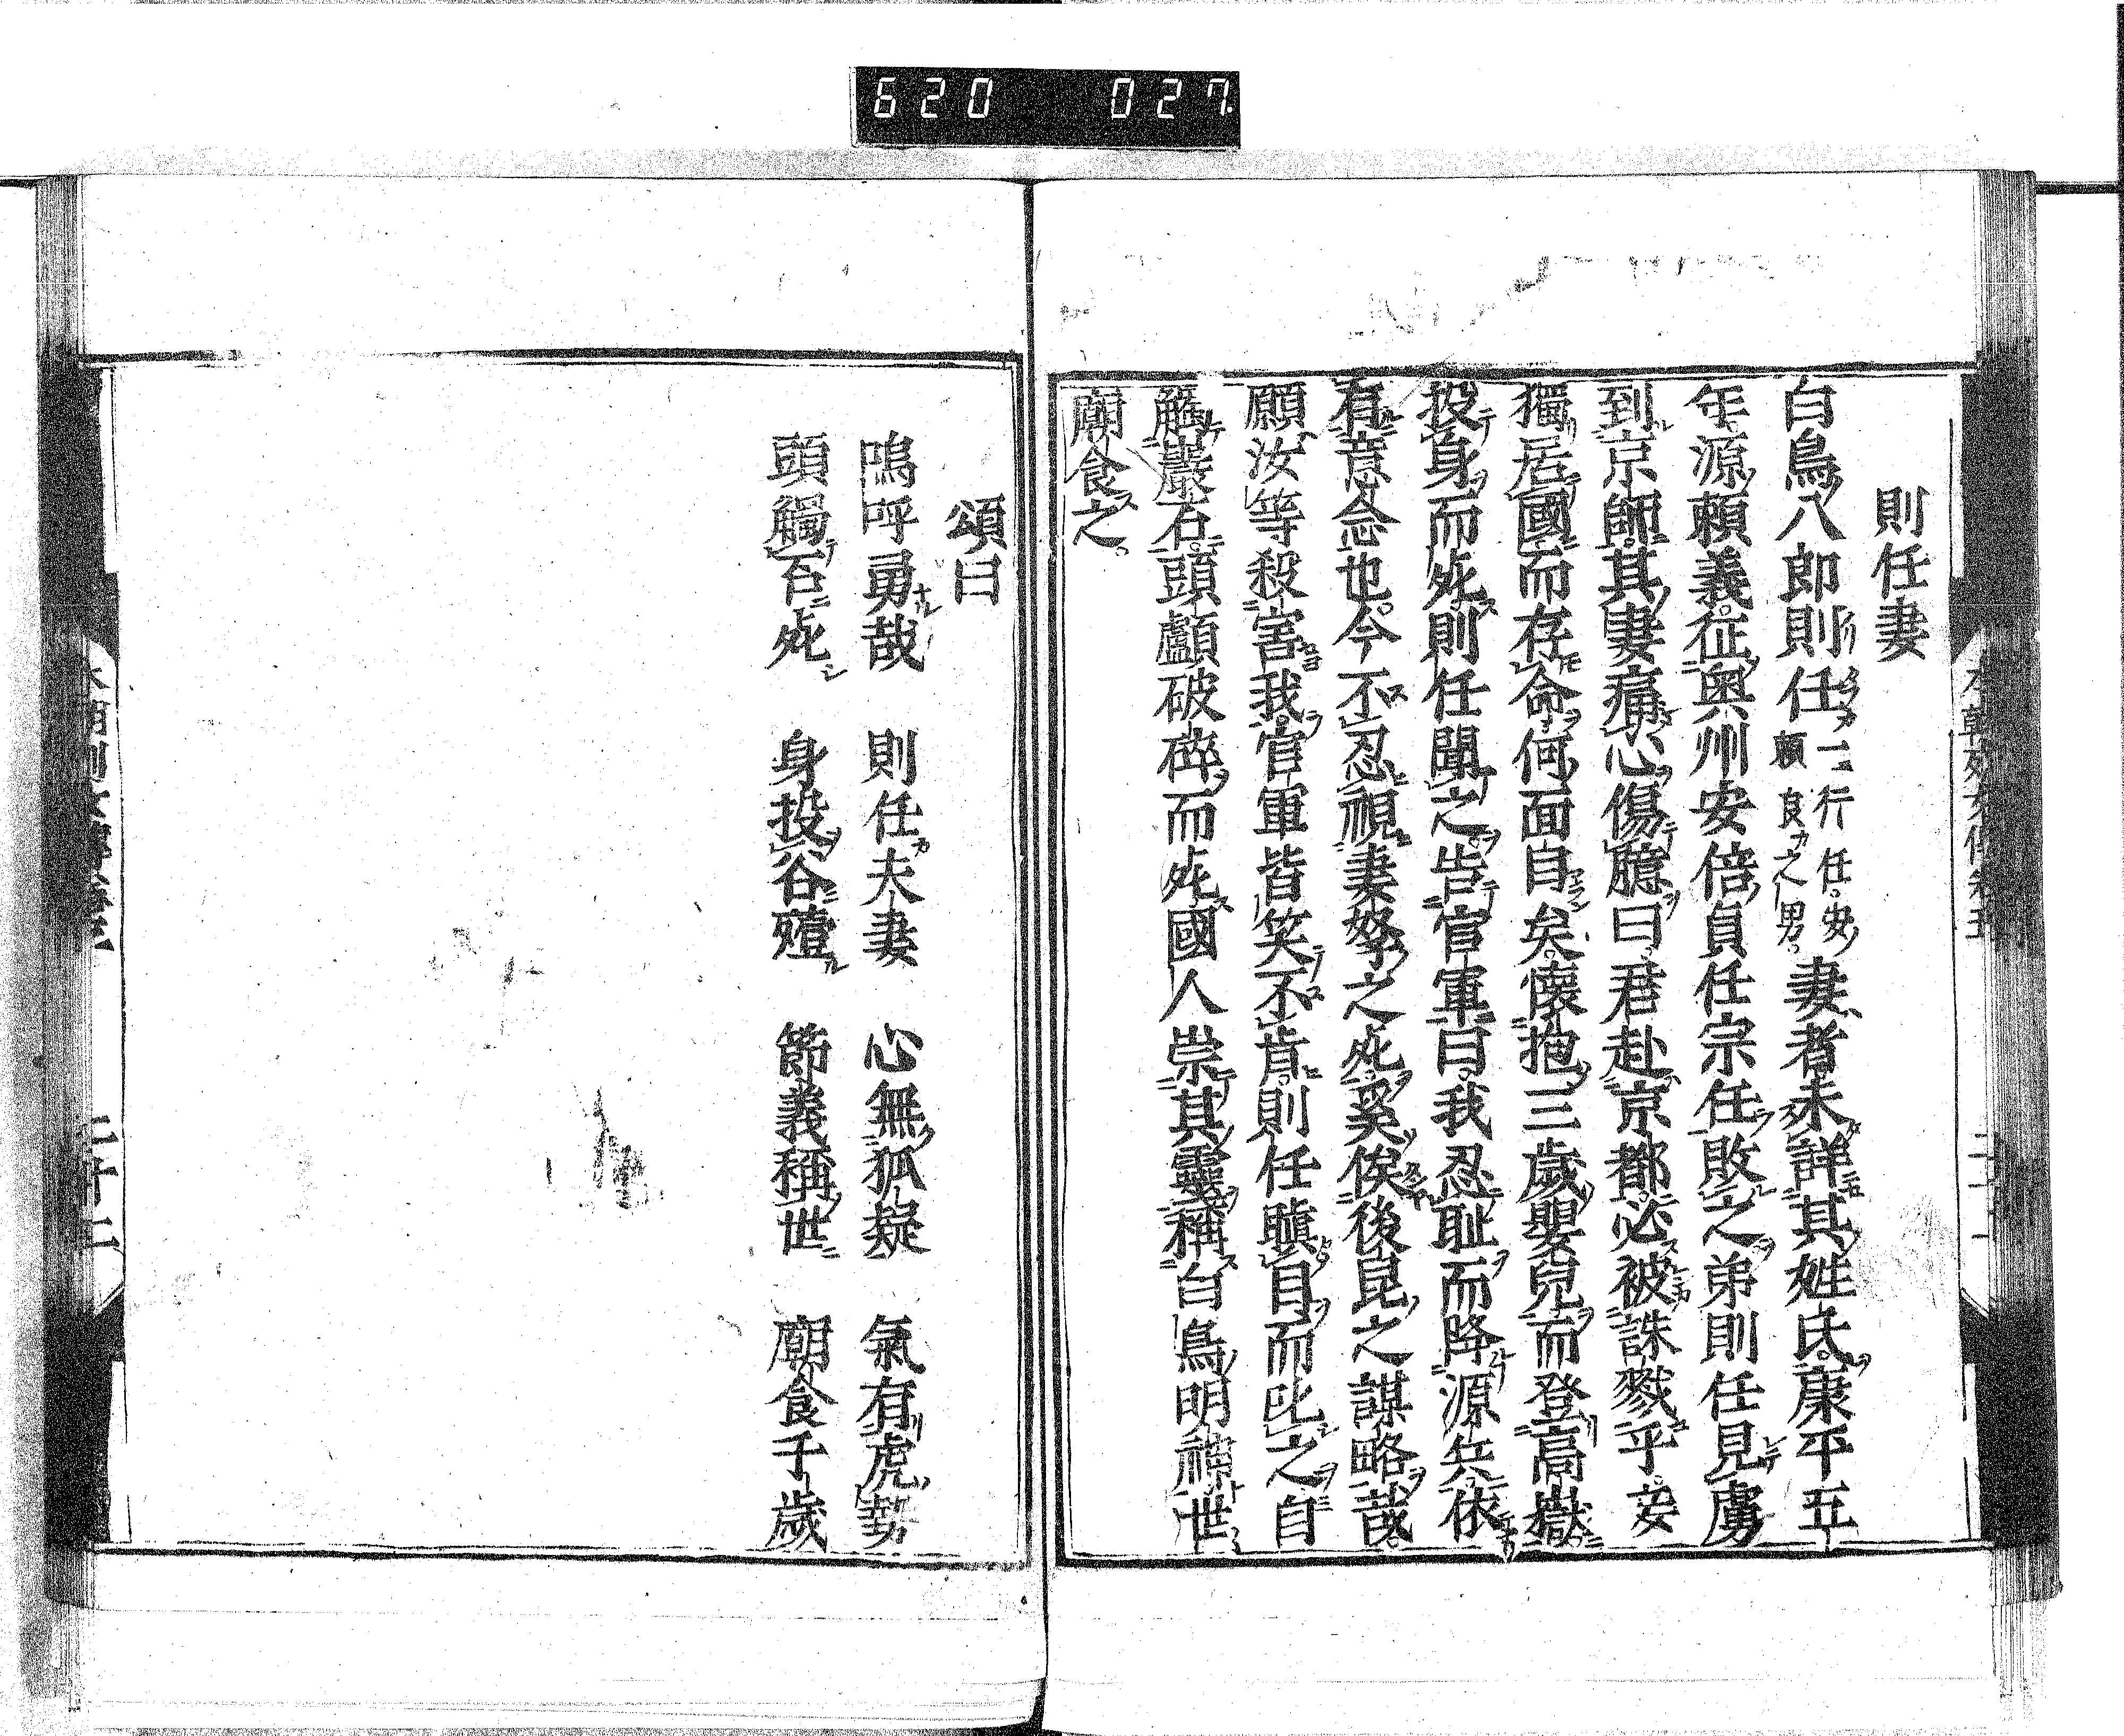 620 027
則任妻
白鳥八郎則任一行任安頼良之男妻者未詳其姓氏康平五
年源頼義征奥州安倍貞任宗任敗之弟則任見虜
到京師其妻痛心傷臆曰君赴京都必被誅戮乎妾
獨居國而存命何面自矣懷抱三歲嬰兒而登高嶽
投身而死則任聞之告官軍曰我忍耻而降源兵依
有意念也今不忍視妻孥之死奚俟後昆之謀略哉
願汝等殺害我官軍皆笑不肯則任瞋目而叱之自
觸巖石頭顱破碎而死國人崇其靈稱白鳥明神世
廟食之
本朝列女傳卷五
頌曰
嗚呼勇哉 則任夫妻 心無狐疑 氣有虎勢
頭觸石死 身投谷殪 節義稱世 廟食千歲
二十二